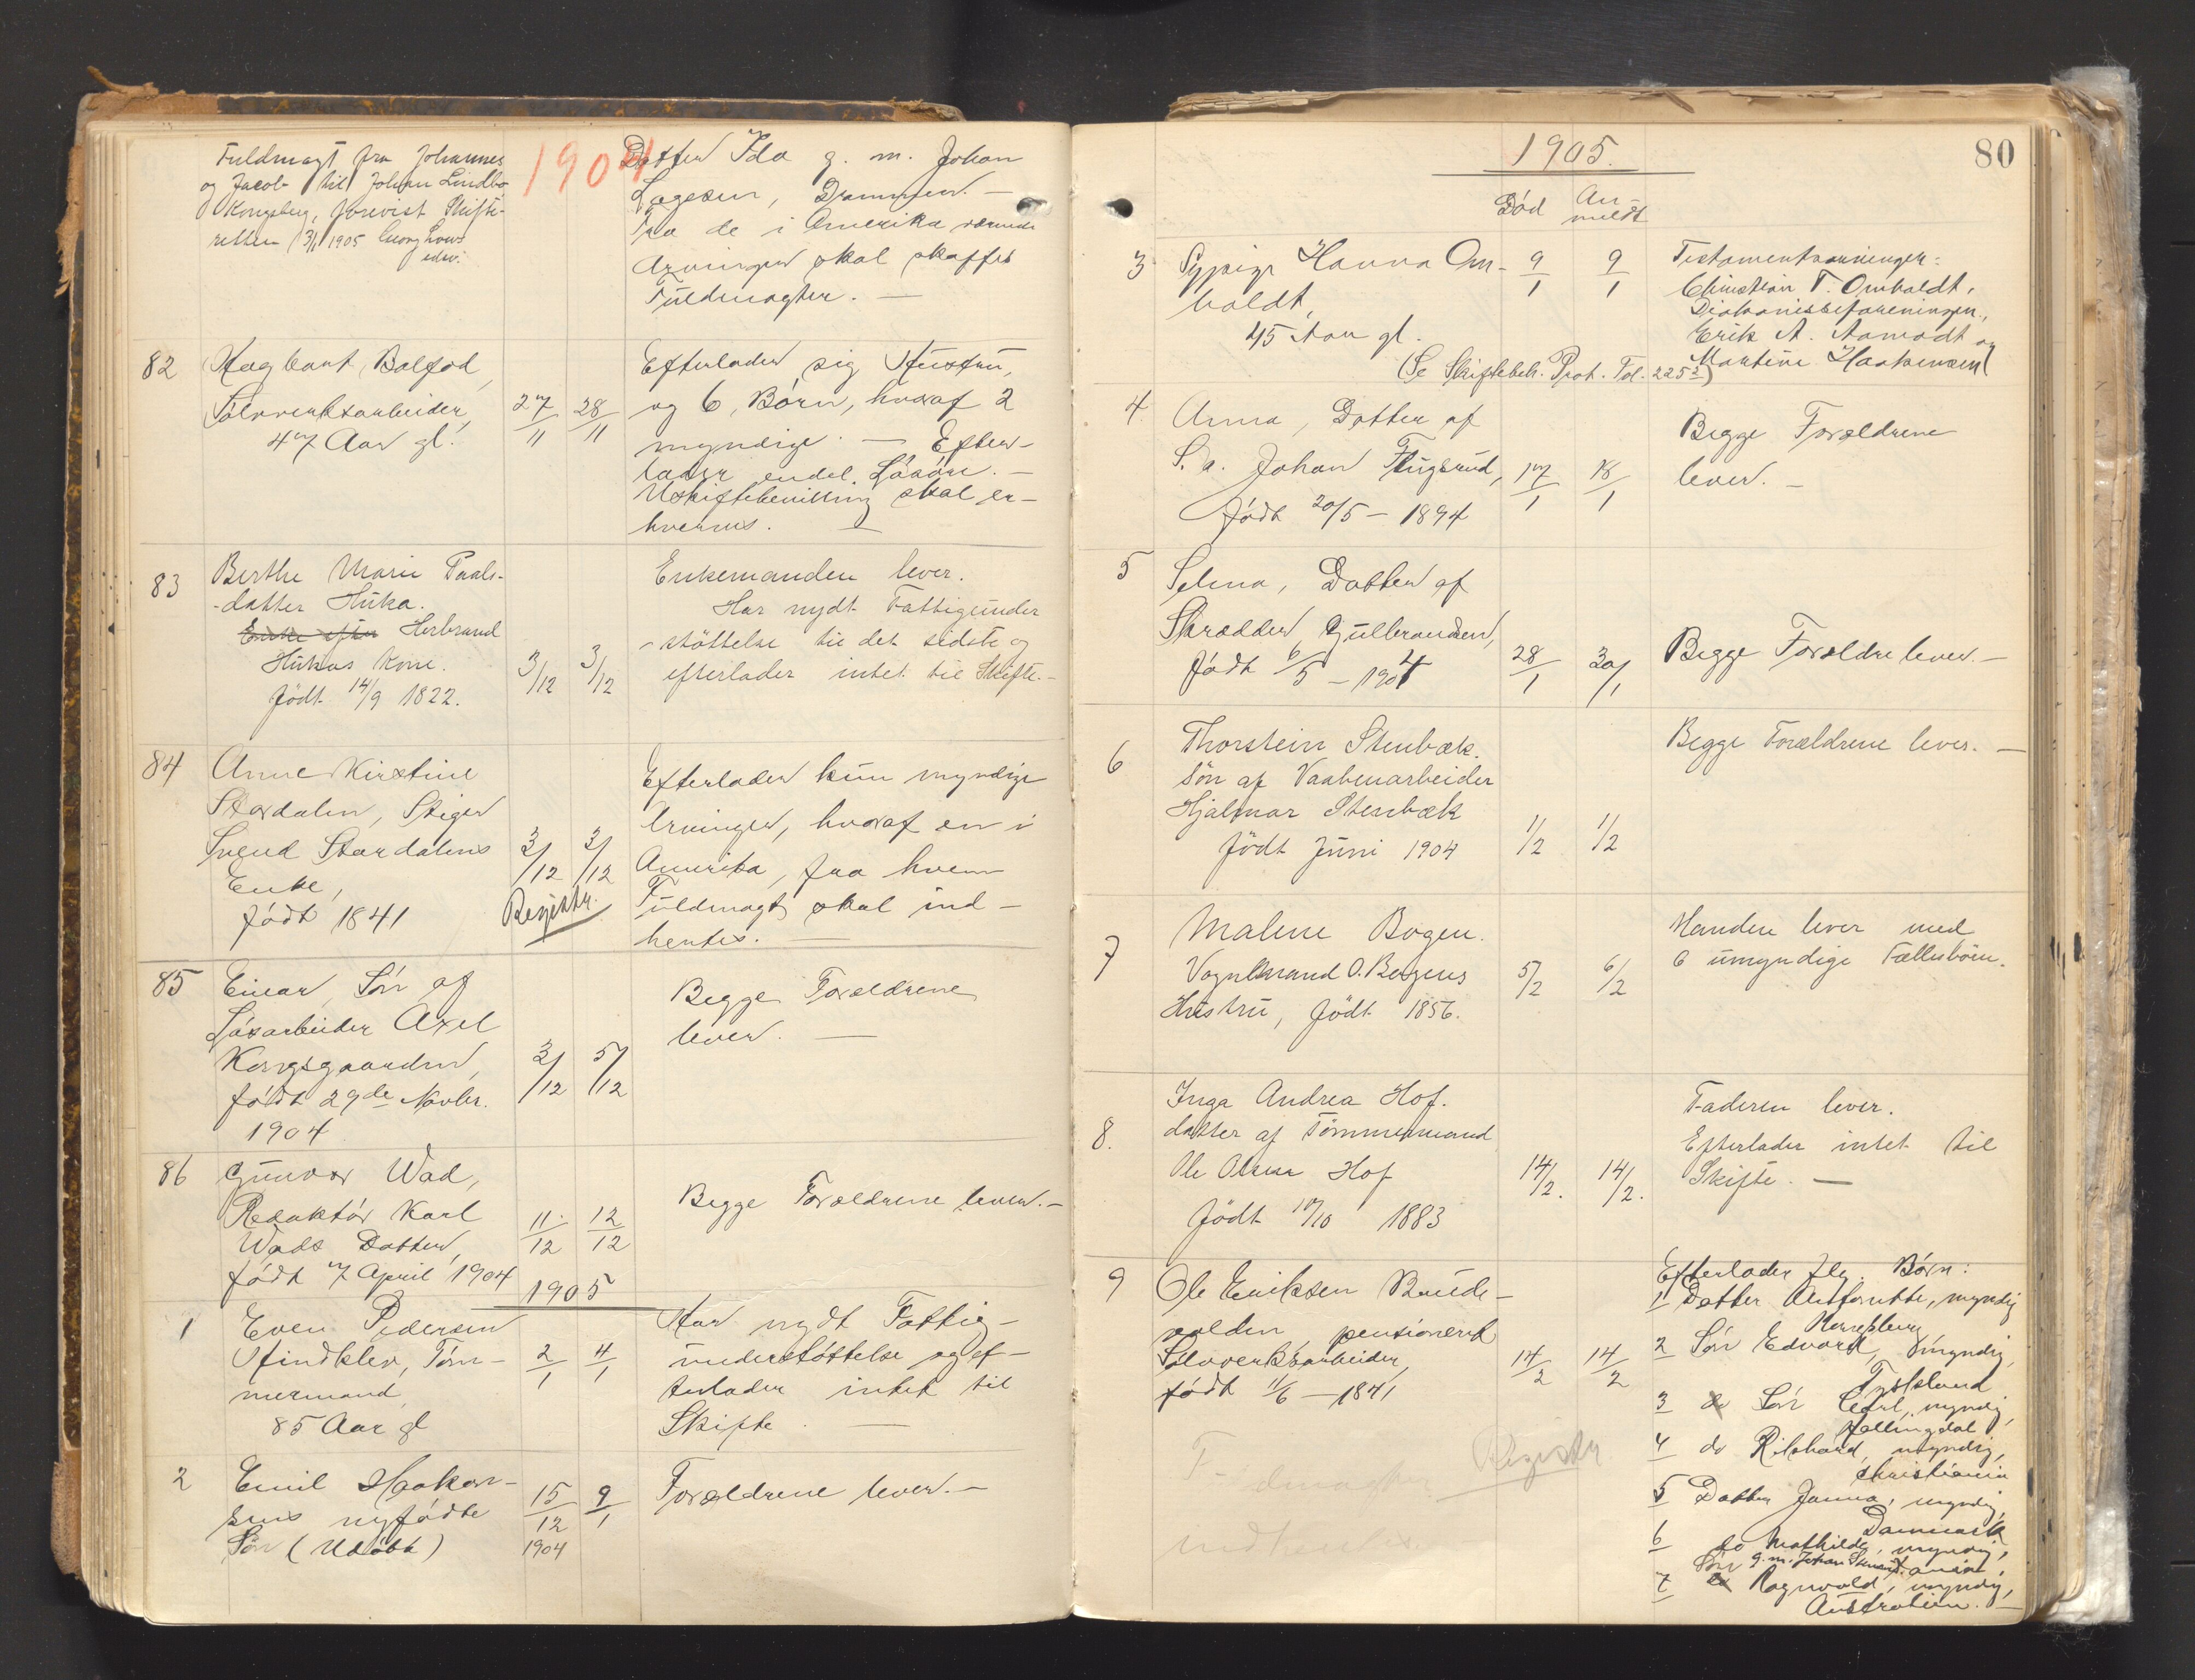 Fuldmagt fra Johannes
og Jacob til Johan Lindbo
Kongsberg, forevist Skifte-
retten 3/1 1905 Georg
1904
Datter Ida g. m. Johan
Lagesen, Drammen. —
Fra de i Amerika værende
Arvinger skal skaffes
Fuldmagter. —
82
Hagbart Balfod,
Sølvverksarbeider,
47 Aar gl.
27/11
28/11
Efterlader sig Hustru,
og 6 Børn, hvoraf 2
myndige. — Efter-
lader endel Løsøre. —
Uskiftebevilling skal er-
hverves. —
83
Berthe Marie Paals-
-datter Huka.
Enke efter Herbrand
Hukas Kone.
Født 14/9 1822.
3/12
3/12
Enkemanden lever.
Har nydt Fattigunder
-støttelse til det sidste og
efterlader intet til Skifte. -
84
Anne Kirstine
Stordalen, Stiger
Svend Stordalens
Enke,
født 1841
3/12
3/12
Registr.
Efterlader kun myndige
Arvinger, hvoraf en i
Amerika, fra hvem
Fuldmagt skal ind-
hentes. —
85
Einar, Søn af
Løsarbeider Axel
Kongsgaarden,
født 29de Novbr.
1904
3/12
5/12
Begge Forældrene
lever. —
86
Gunvor Wad,
Redaktør Karl
Wads Datter,
født 7 April 1904
11/12
12/12
Begge Forældrene lever. -
1905
1
Even Pedersen
Vindklev, Tøm-
mermand,
85 Aar gl
2/1
4/1
Har nydt Fattig-
understøttelse og ef-
terlader intet til
Skifte. —
2
Emil Haakon-
sens nyfødte
Søn (Udøbt)
15/12
1904
9/1
Forældrene lever. —
80
1905.
Død
An-
meldt
3
Sypige Hanna Om-
holdt,
45 Aar gl.
9/1
9/1
Testamentsarvinger:
Christian T. Omholdt,
Diakonisseforeningen,
Erik A. Aamodt og
Martine Haakensen
(Se Skiftebeh. Prot. Fol. 225)
4
Anna, Datter af
S. a. Johan Flugsrud,
født 20/5 - 1894
17/1
18/1
Begge Forældrene
lever. —
5
Selma, Datter af
Skrædder Gulbrandsen,
født 6/5 - 1904
28/1
30/1
Begge Forældre lever. —
6
Thorstein Stenbæk.
søn af Vaabenarbeider
Hjalmar Stenbæk
født Juni 1904
1/2
1/2
Begge Forældrene lever. —
7
Malene Bogen.
Vognmand O. Bogens
Hustru, født 1856.
5/2
6/2
Manden lever med
6 umyndige Fællesbørn.
8.
Inga Andrea Hof.
datter af Tømmermand
Ole Olsen Hof
født 17/10 1883
14/2.
14/2.
Faderen lever.
Efterlader intet til
Skifte. —
9
Ole Eriksen
pensioneret
Sølvverksarbeider,
født 11/6 - 1841
14/2
14/2
Registr
indhentes.
Efterlader flg. Børn:
1 Datter myndig
2 Søn Edvard, myndig,
3 Søn Carl, myndig,
Hallingdal
4 do Rikhard, myndig,
Christiania
5 Datter Janna, myndig,
Danmark
6 do Mathilde, myndig,
g. m. Johan
7 Søn Ragnvald, myndig,
Australien. —